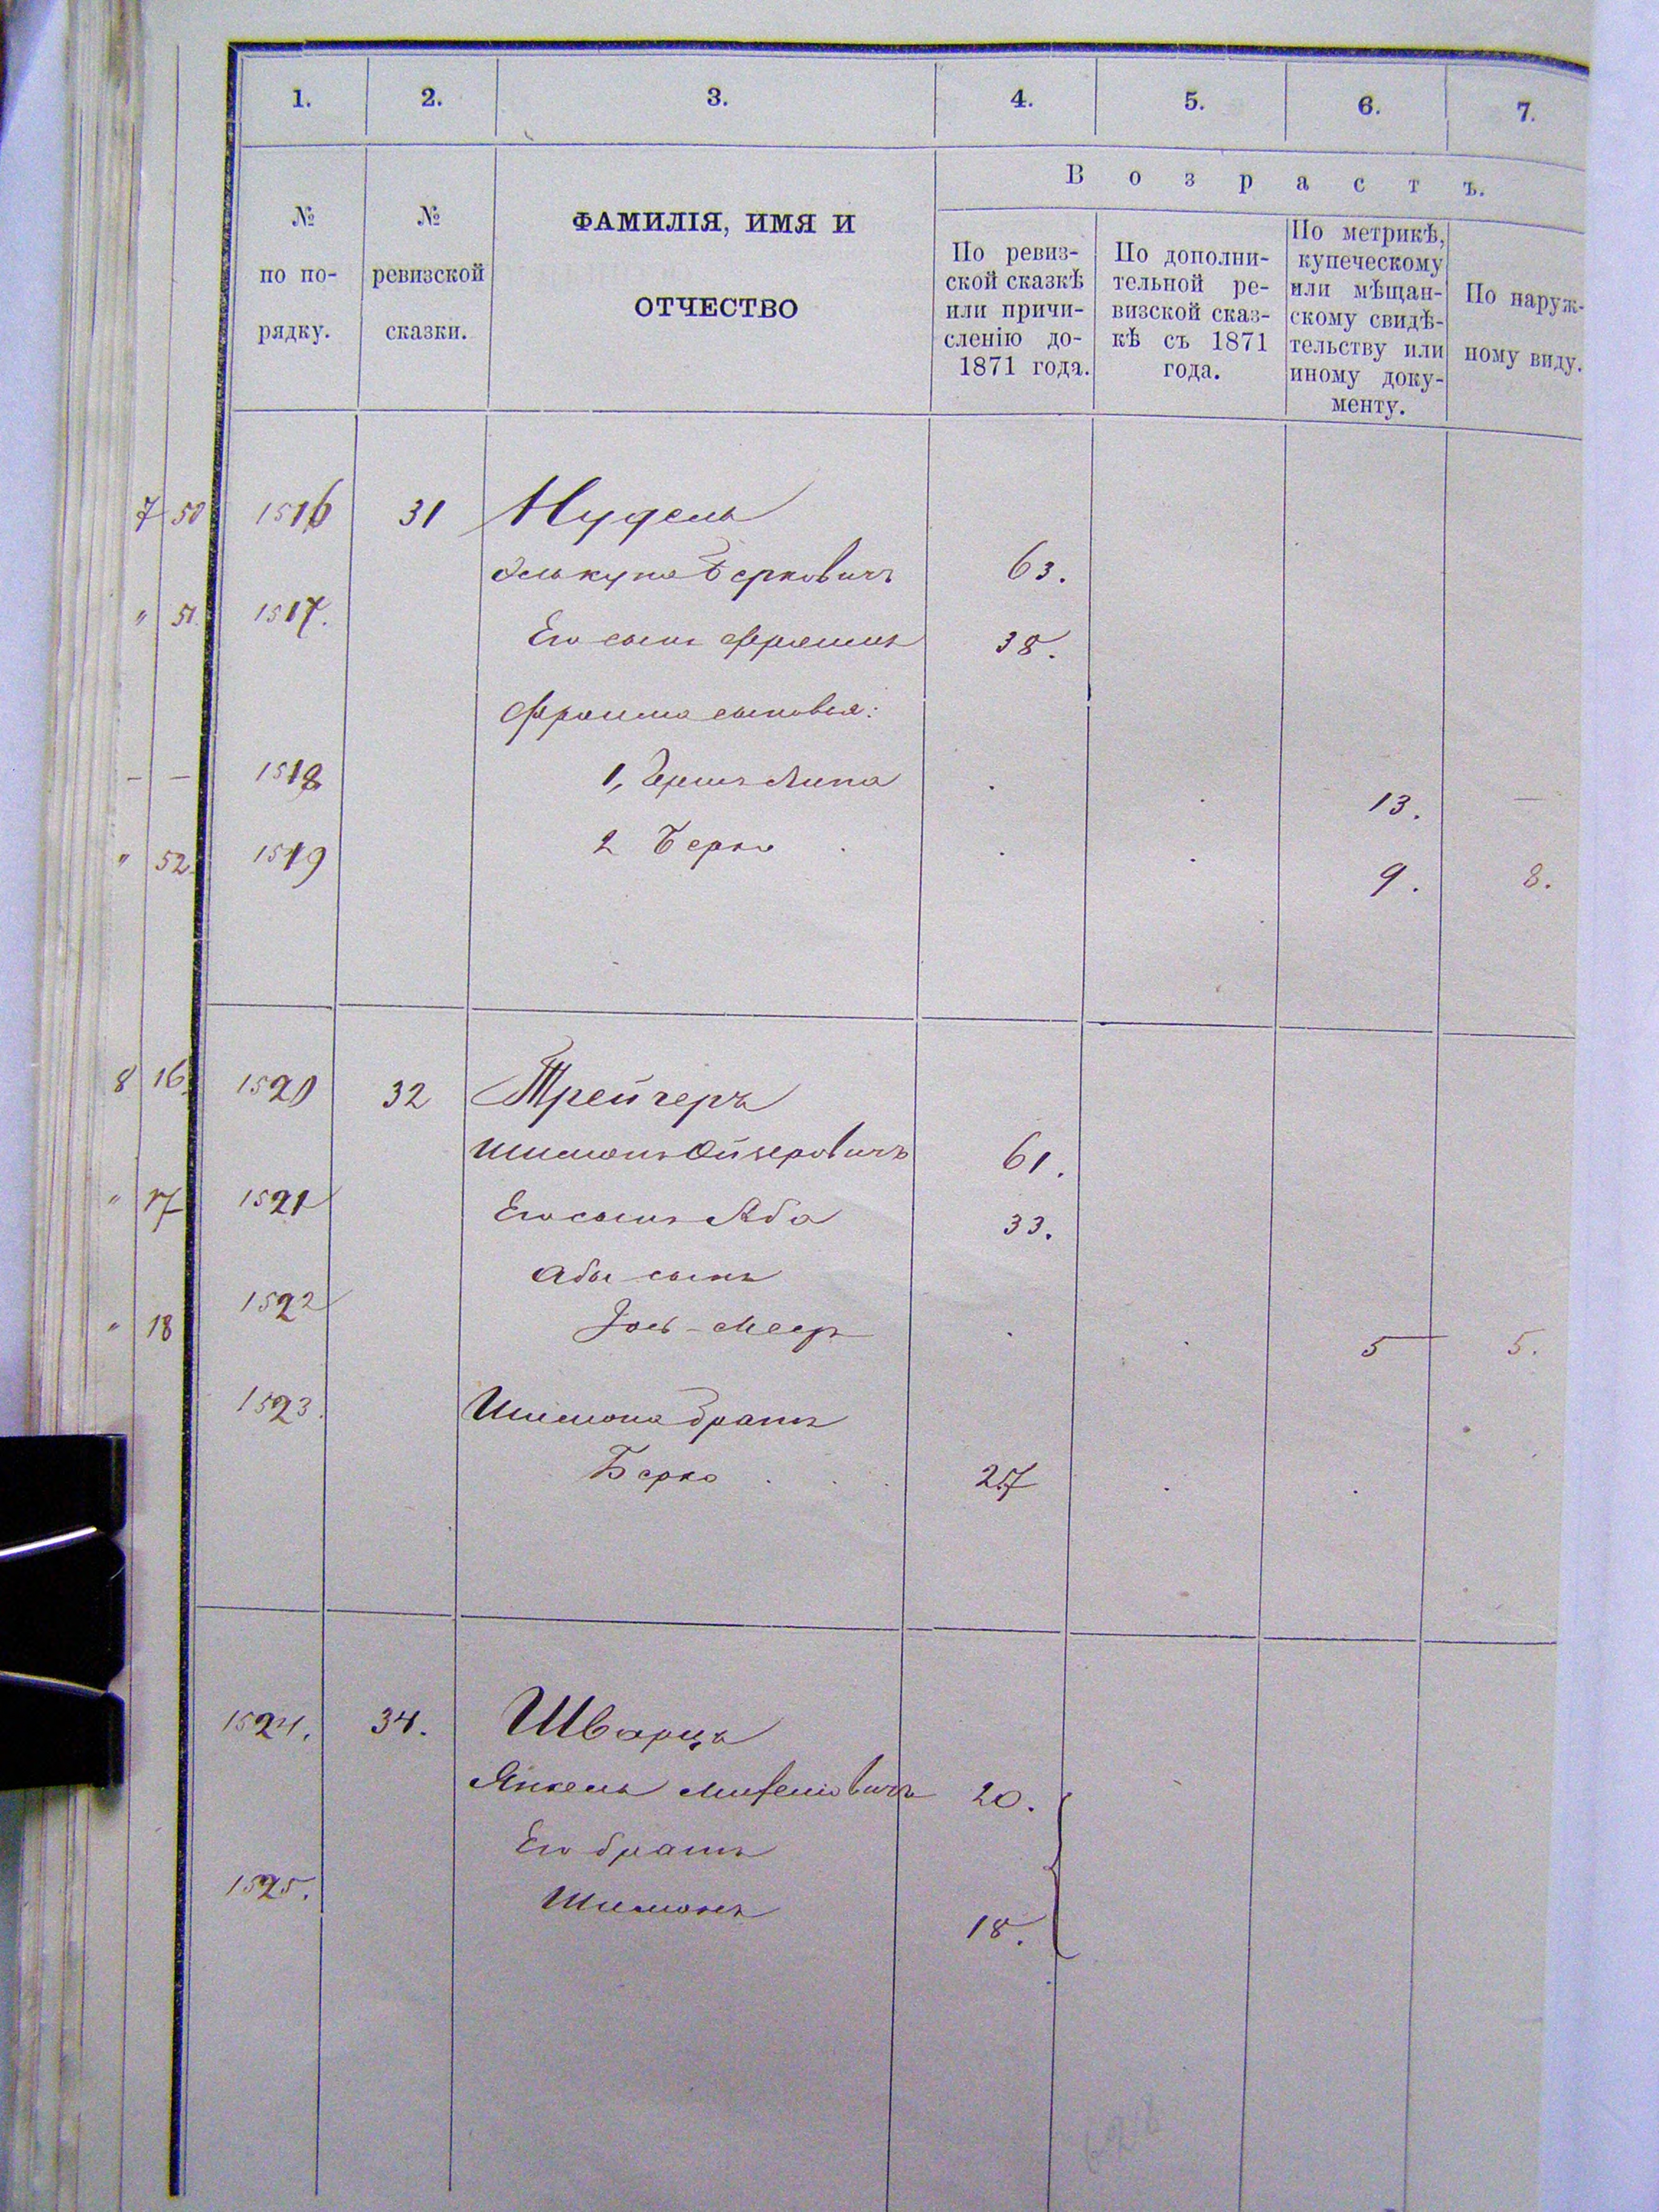 1. 2. 3. 4. 5. 6. 7.
№ по порядку.
№ ревизской сказки.
ФАМИЛІЯ, ИМЯ И
ОТЧЕСТВО
Возрастъ.
По ревиз-
ской сказкѣ
или причи-
сленію до-
1871 года.
По дополни-
тельной ре-
визской сказ-
кѣ съ 1871
года.
По метрикѣ,
купеческому
или мѣщан-
скому свидѣ-
тельству или
иному доку-
менту.
По наруж-
ному виду.
7 50 1516 31 Нудель
Элькуна Берковичъ 63.
" 51. 1517. Его сынъ Фроимъ 38.
Фроима сыновья:
— — 1518 1, Гершъ Липа 13. —
" 52. 1519 2 Берко 9. 8.
8 16. 1520 32 Трейгеръ
Шимонъ Ойзеровичъ 61.
" 17 1521 Его сынъ Аба 33.
Абы сынъ
" 18 1522 Іось-Мееръ 5 5.
1523. Шимона братъ
Берко 27
1524. 34. Шварцъ
Янкель 20.
Его братъ
1525. Шимонъ 18.
628